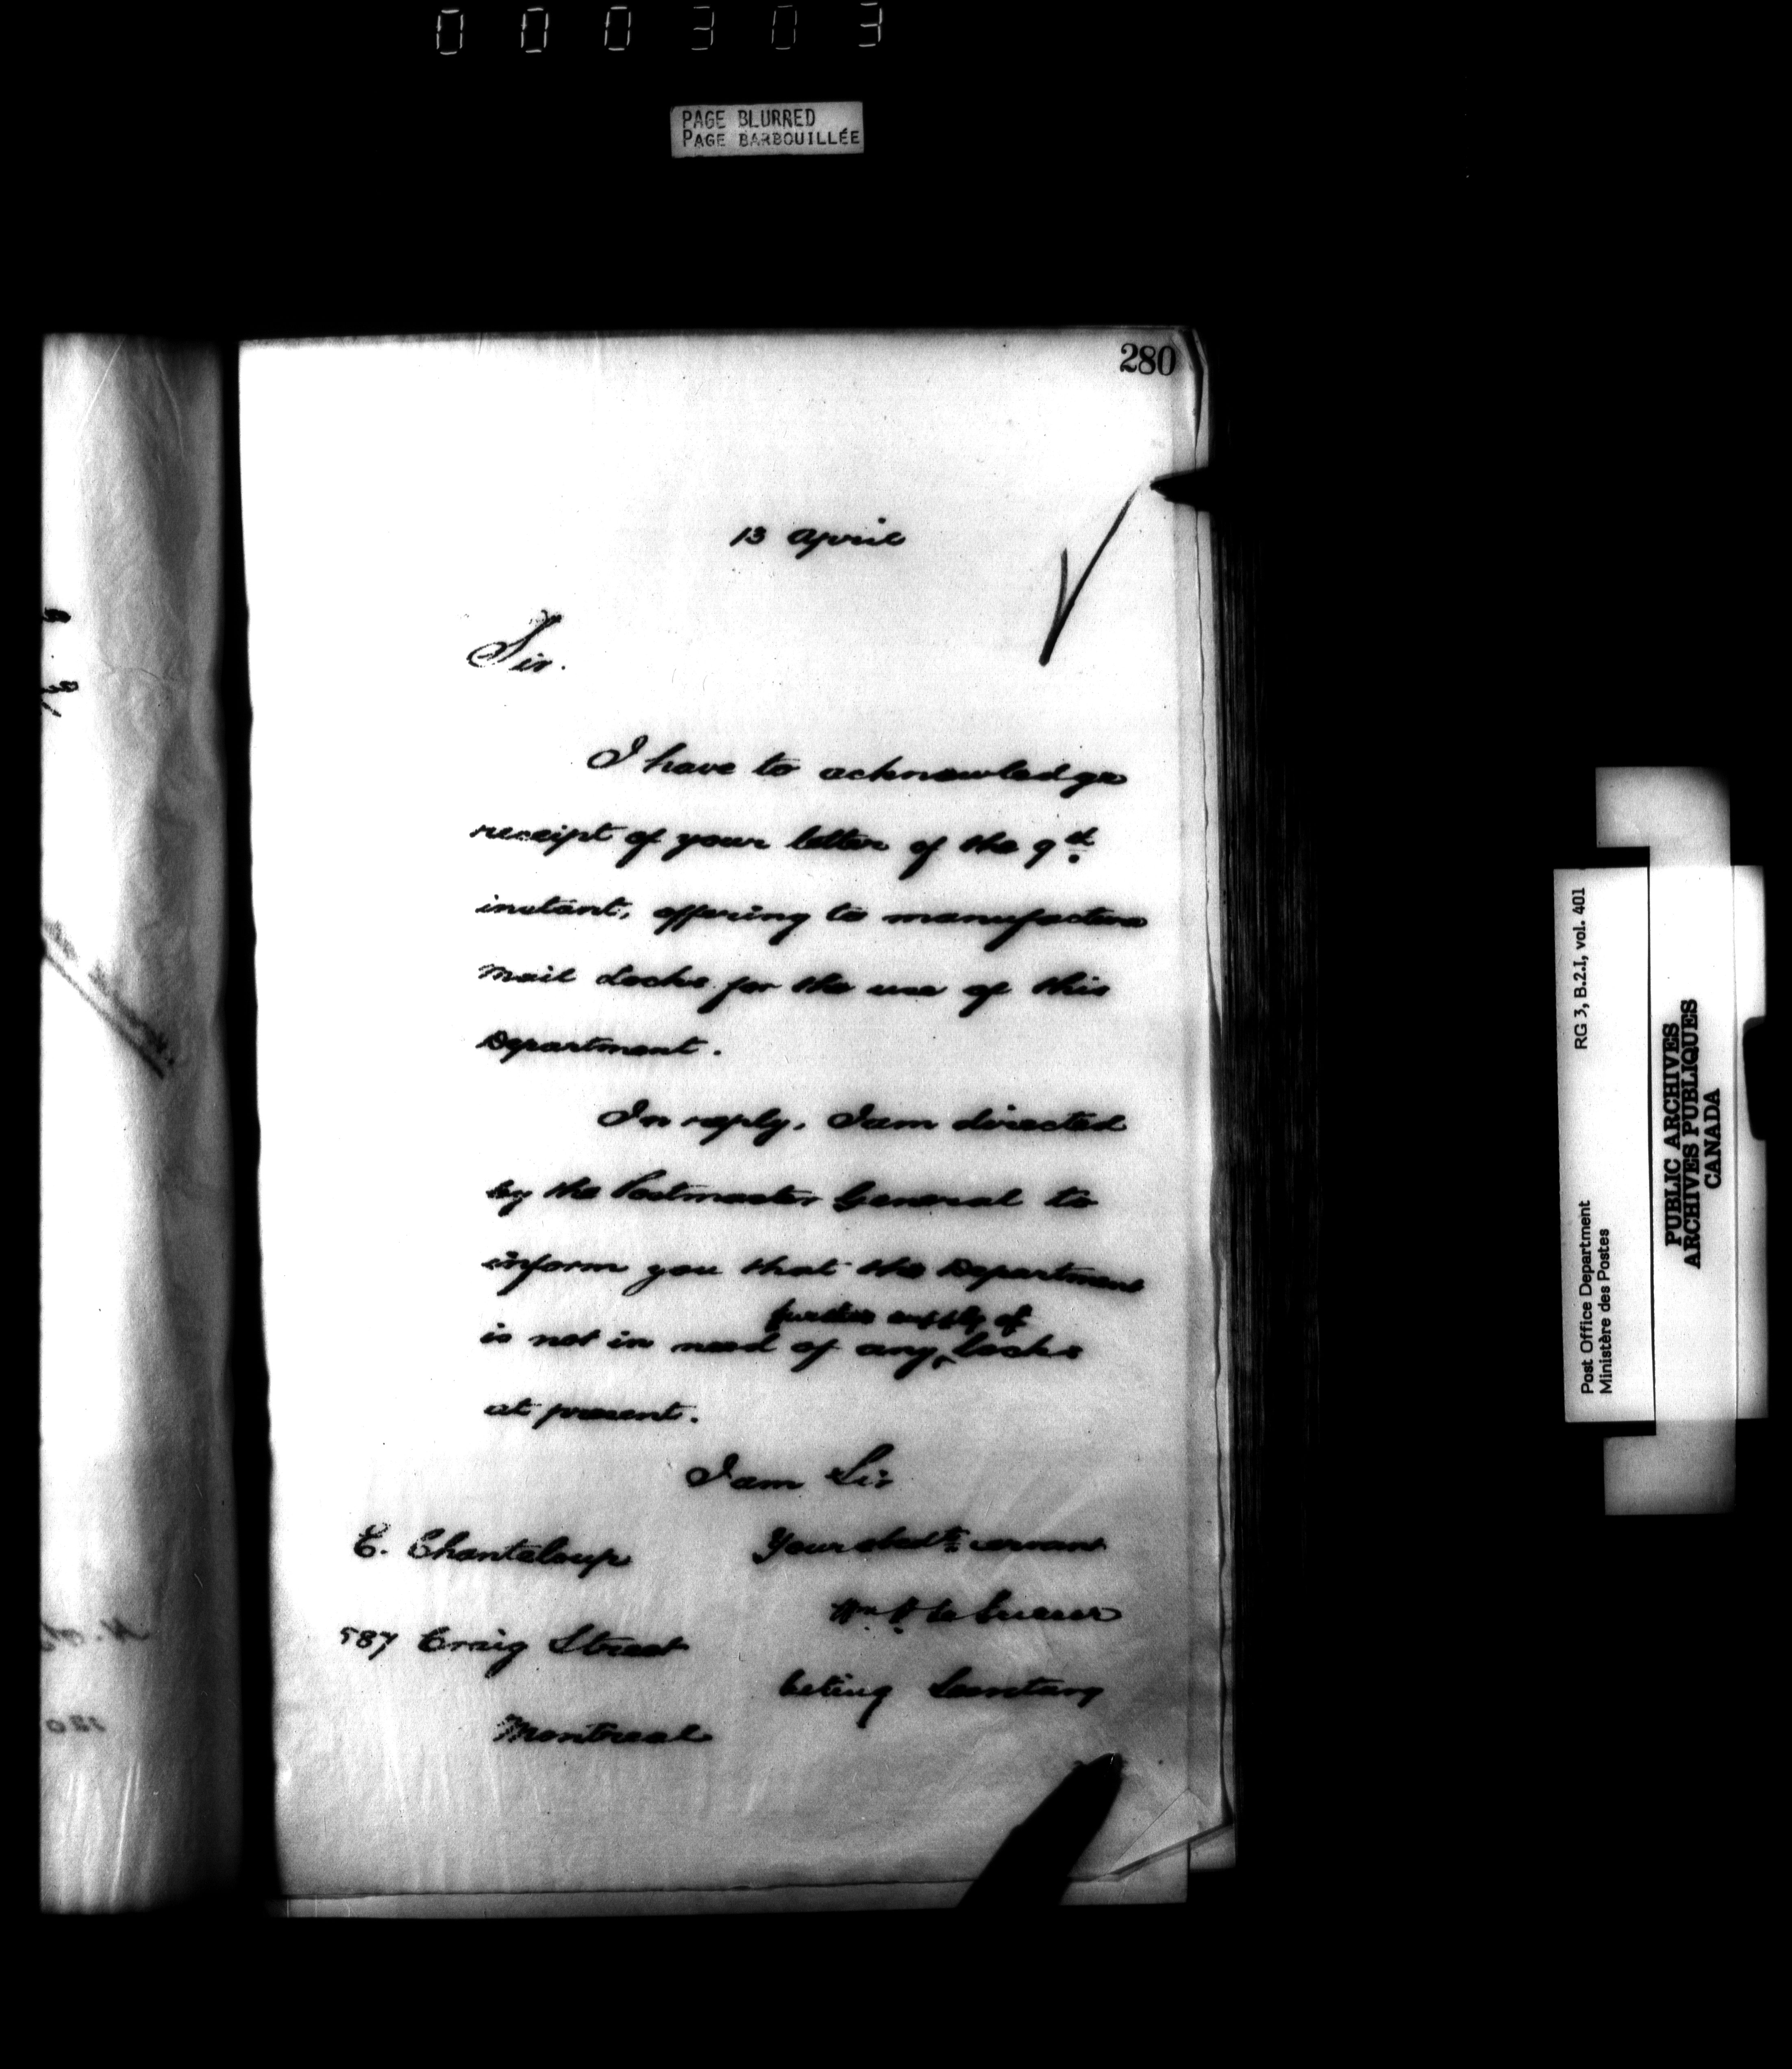 000303
PAGE BLURRED
PAGE BARBOUILLÉE
280
13 April
Sir.
I have to acknowledge
receipt of your letter of the 9th
instant, offering to manufacture
Mail Locks for the use of this
Department.
In reply, I am directed
by the Postmaster General to
inform you that the Department
further supply of
is not in need of any ‸ locks
at present.
I am Sir
Your obedt servant
Wm. D. Le Sueur
Acting Secretary
E. Chanteloup
587 Craig Street
Montreal
Post Office Department RG 3, B.2.I, vol. 401
Ministère des Postes
PUBLIC ARCHIVES
ARCHIVES PUBLIQUES
CANADA